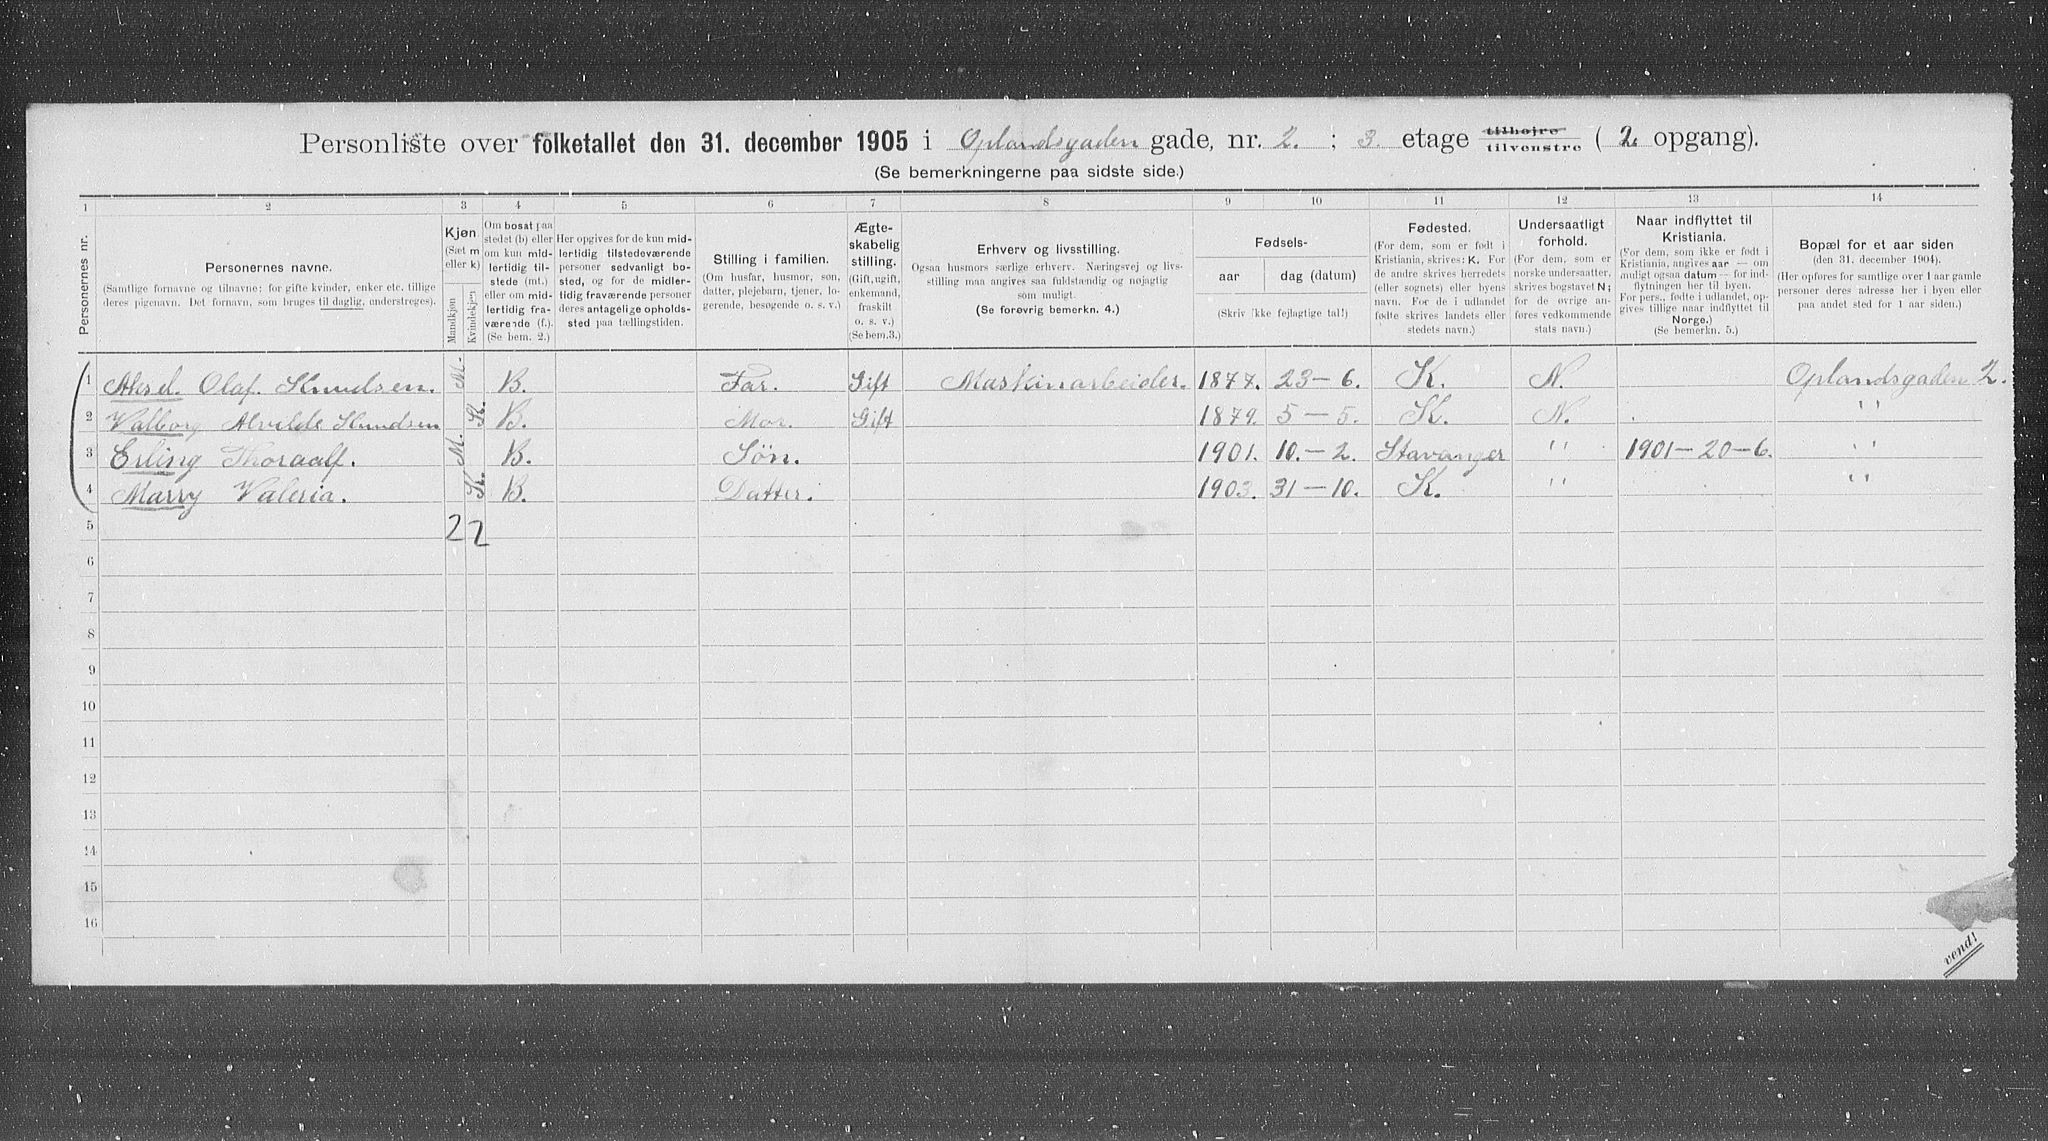 Personliste over folketallet den 31. december 1905 i Oplandsgaden gade, nr. 2. ; 3. etage tilhøjre tilvenstre ( 2. opgang).
(Se bemerkningerne paa sidste side.)
1 2 3 4 5 6 7 8 9 10 11 12 13 14
Personernes nr.
Personernes navne.
(Samtlige fornavne og tilnavne: for gifte kvinder, enker etc. tillige
deres pigenavn. Det fornavn, som bruges til daglig, understreges).
Kjøn
(Sæt m
eller k)
Mandkjøn
Kvindekjøn
Om bosat paa
stedet (b) eller
om kun mid-
lertidig til-
stede (mt.)
eller om mid-
lertidig fra-
værende (f.).
(Se bem. 2.)
Her opgives for de kun mid-
lertidig tilstedeværende
personer sedvanligt bo-
sted, og for de midler-
tidig fraværende personer
deres antagelige opholds-
sted paa tællingstiden.
Stilling i familien.
(Om husfar, husmor, søn,
datter, plejebarn, tjener, lo-
gerende, besøgende o. s. v.)
Ægte-
skabelig
stilling.
(Gift, ugift,
enkemand,
fraskilt
o. s. v.)
(Se bem.3.)
Erhverv og livsstilling.
Ogsaa husmors særlige erhverv. Næringsvej og livs-
stilling maa angives saa fuldstændig og nøjagtig
som muligt.
(Se forøvrig bemerkn. 4.)
Fødsels-
aar dag (datum)
(Skriv ikke fejlagtige tal!)
Fødested.
(For dem, som er født i
Kristiania, skrives: K. For
de andre skrives herredets
(eller sognets) eller byens
navn. For de i udlandet
fødte skrives landets eller
stedets navn.)
Undersaatligt
forhold.
(For dem, som er
norske undersaatter,
skrives bogstavet N;
for de øvrige an-
føres vedkommende
stats navn.)
Naar indflyttet til
Kristiania.
(For dem, som ikke er født i
Kristiania, angives aar — om
muligt ogsaa datum — for ind-
flytningen her til byen.
For pers., fødte i udlandet, op-
gives tillige naar indflyttet til
Norge.)
(Se bemerkn. 5.)
Bopæl for et aar siden
(den 31. december 1904).
(Her opføres for samtlige over 1 aar gamle
personer deres adresse her i byen eller
paa andet sted for 1 aar siden.)
1 Aksel Olaf Knudsen. M. B. Far. Gift Maskinarbeider. 1877. 23-6. K. N. Oplandsgaden 2.
2 Valborg Alvilde Knudsen K. B. Mor. Gift 1879. 5-5. K. N. "
3 Erling Thoraalf. M. B. Søn. 1901. 10.-2. Stavanger " 1901-20-6. "
4 Marry Valeria. K. B. Datter. 1903. 31-10. K. " "
5 2 2
6
7
8
9
10
11
12
13
14
15
16
vend!